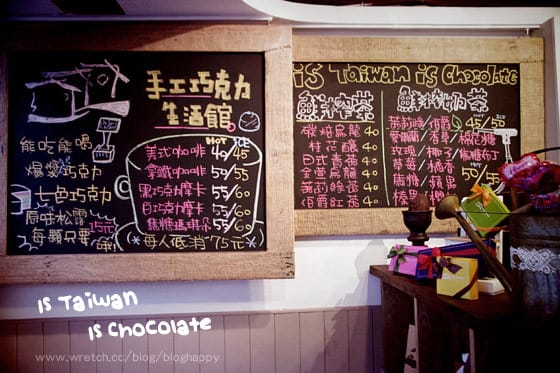 手工巧克力
生活館
能吃能喝
爆漿巧克力
七色巧克力
原味松露
每顆只要15元
HOT ICE
美式咖啡 40/45
拿鐵咖啡 50/55
黑巧克力摩卡 55/60
白巧克力摩卡 55/60
焦糖瑪琪朵 55/60
*每人低消75元*
is Taiwan is Chocolate
鮮榨茶
碳焙烏龍 40
桂花釀 40
日式青茶 40
金萱烏龍 40
茉莉綠茶 40
伯爵紅茶 40
鮮榨奶茶
HOT ICE
茉莉綠/伯爵 45/50
玫瑰/椰子/焦糖布丁
草莓/橘香 50/55
焦糖/蘋果
榛果
IS Taiwan
IS Chocolate
www.wretch.cc/blog/bloghappy